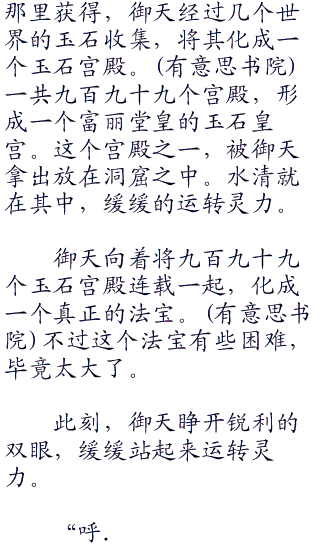 那里获得，御天经过几个世
界的玉石收集，将其化成一
个玉石宫殿。(有意思书院)
一共九百九十九个宫殿，形
成一个富丽堂皇的玉石皇
宫。这个宫殿之一，被御天
拿出放在洞窟之中。水清就
在其中，缓缓的运转灵力。
御天向着将九百九十九
个玉石宫殿连载一起，化成
一个真正的法宝。(有意思书
院)不过这个法宝有些困难，
毕竟太大了。
此刻，御天睁开锐利的
双眼，缓缓站起来运转灵
力。
“呼.